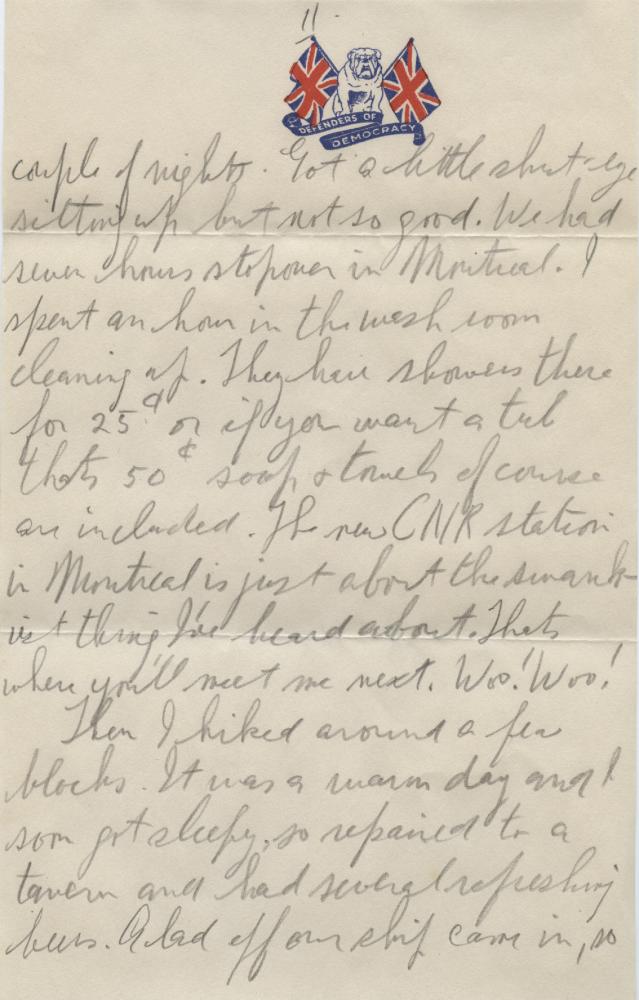 11.
DEFENDERS OF
DEMOCRACY
couple of nights. Got a little shut-eye
sitting up but not so good. We had
seven hours stopover in Montreal. I
spent an hour in the wash room
cleaning up. They have showers there
for 25¢ or if you want a tub
thats 50¢ soap & towels of course
are included. The new CNR station
in Montreal is just about the swank-
ist thing I've heard about. Thats
where you'll meet me next. Woo! Woo!
Then I hiked around a few
blocks. It was a warm day and I
soon got sleepy, so repaired to a
tavern and had several refreshing
beers. A lad off our ship came in, so